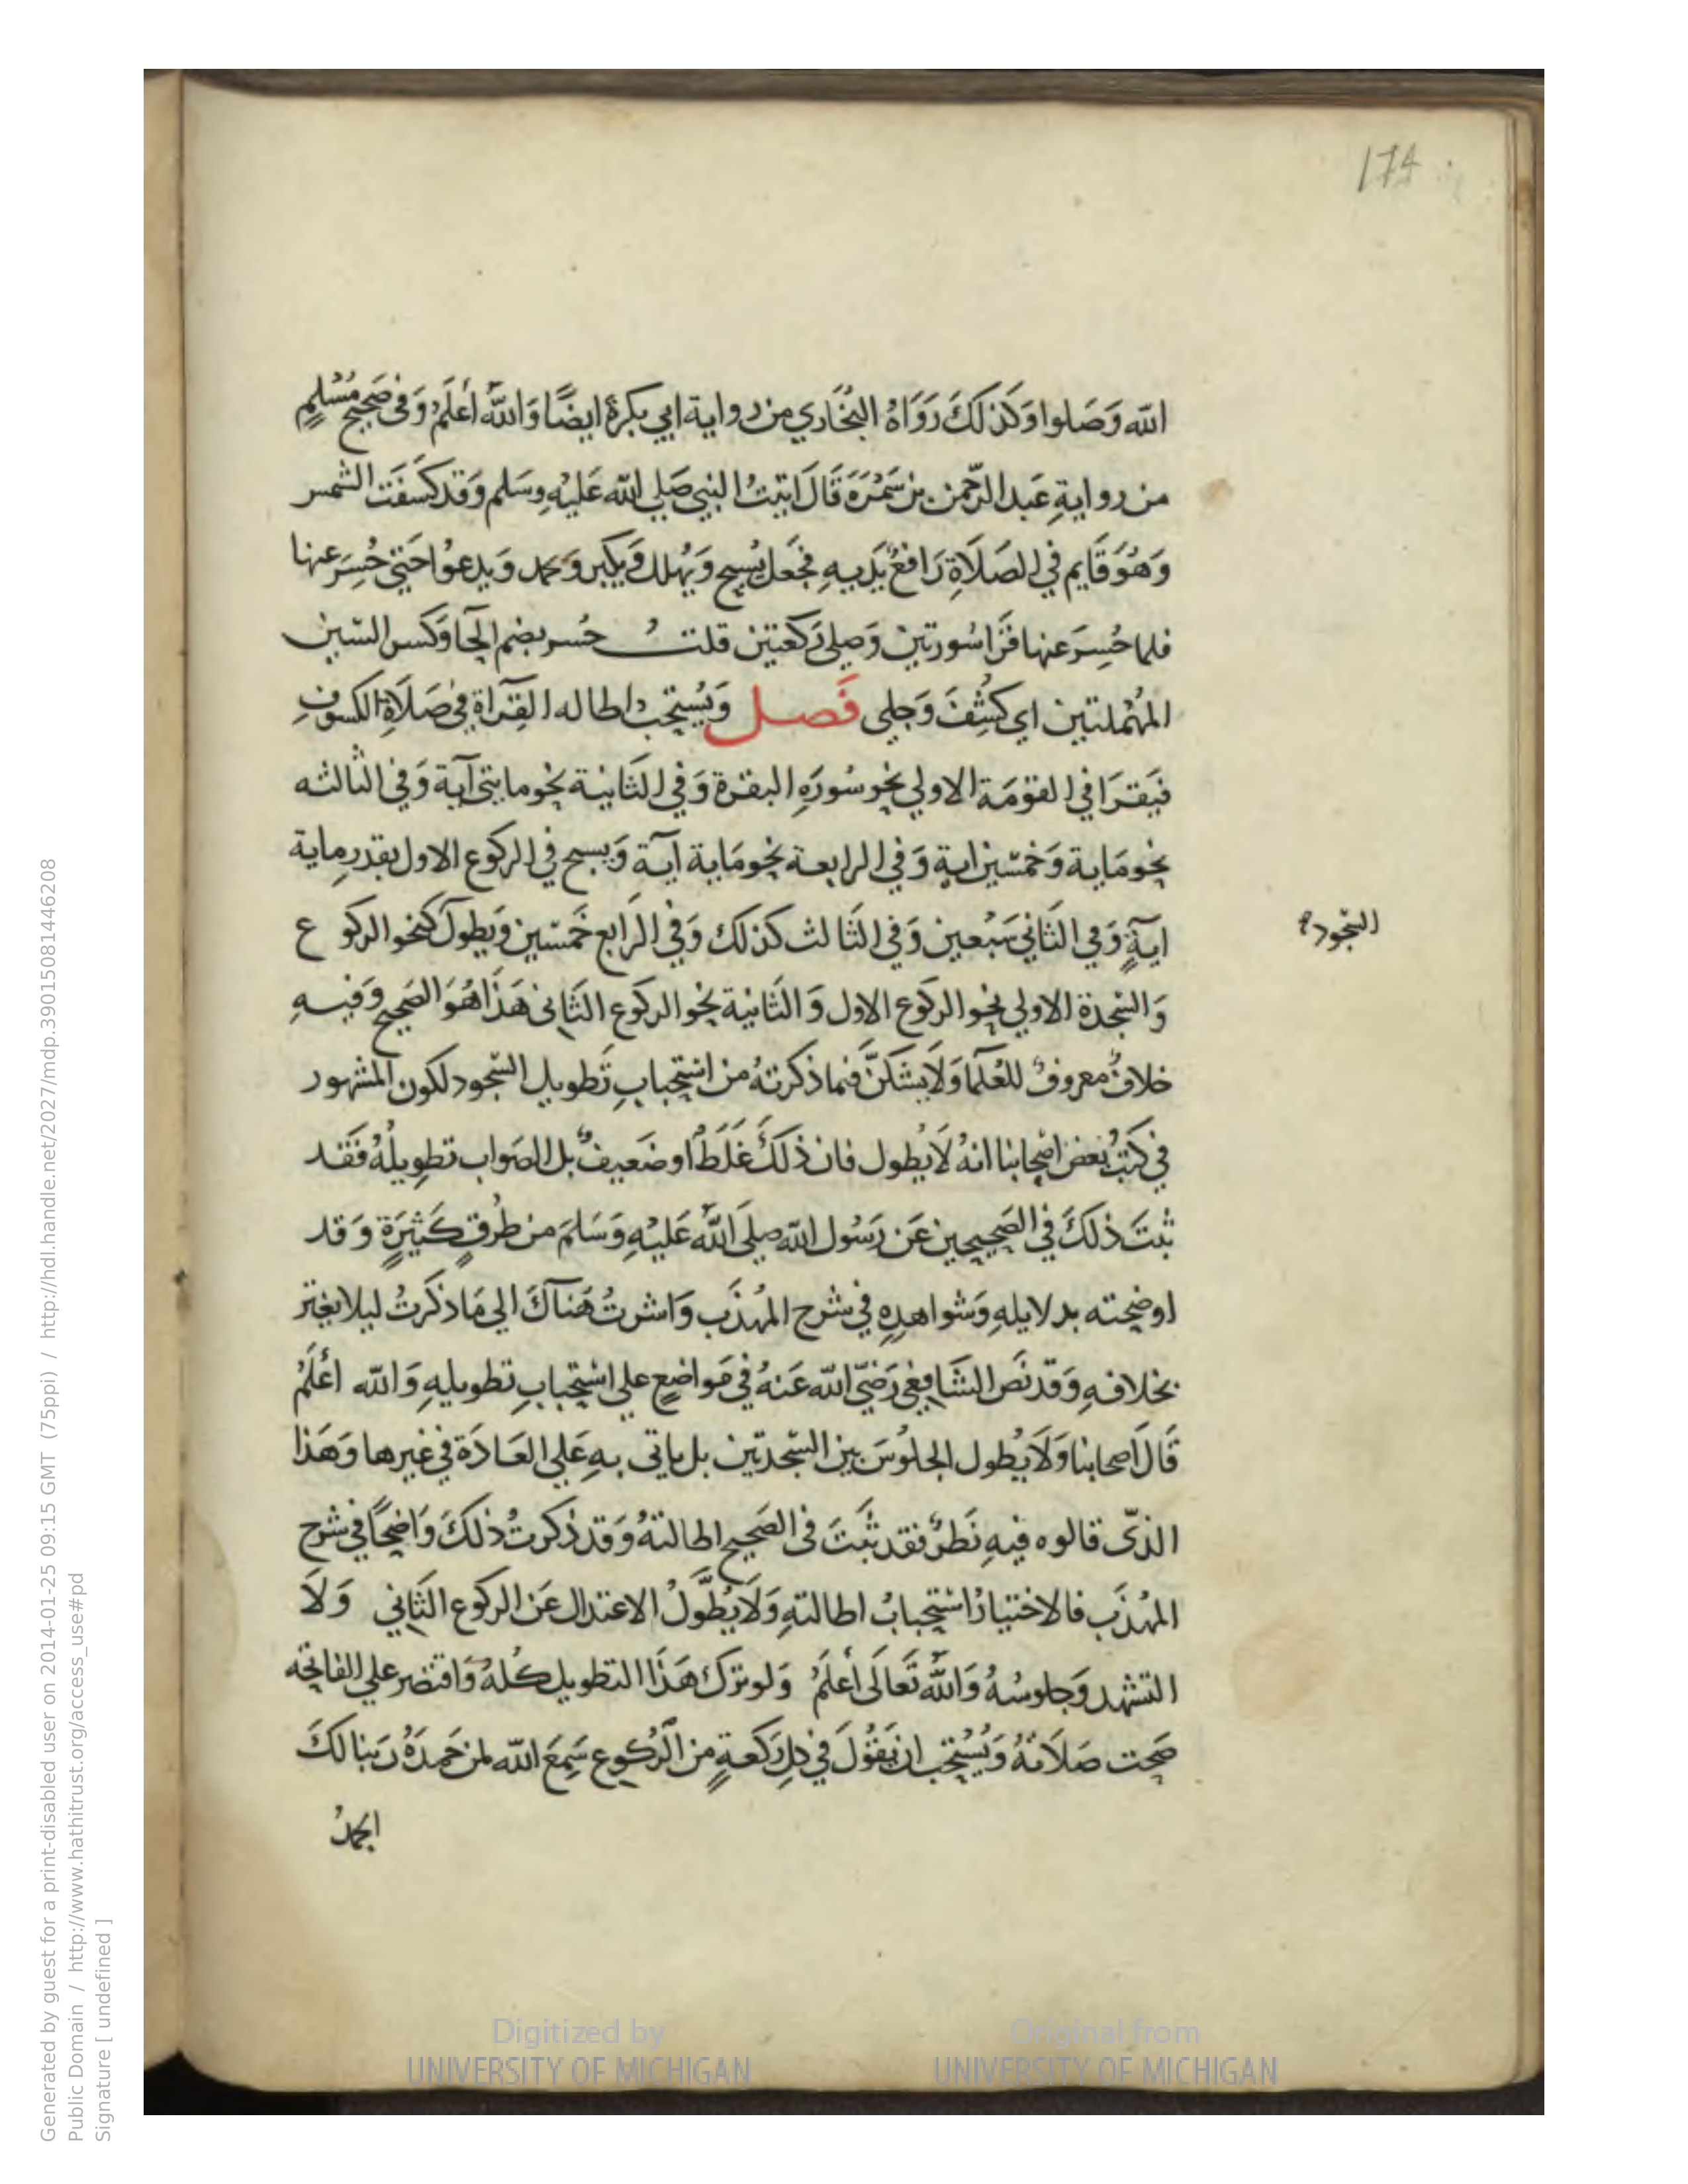 174
الله وَصَلوا وَكَذلكَ رَوَاهُ البُخَاري من رواية ابي بكرة ايضًا وَاللهُ أعلَمُ وَفي صَحيح مُسْلمٍ
من روايةِ عَبد الرّحمن بن سَمُرَةَ قَالَ اتيتُ النبي صَلى الله عَليْهِ وسَلم وَقد كسَفَت الشمس
وَهُوَ قَايم في الصَلَاةِ رَافعٌ يَدَيهِ فجَعل يُسبح وَيُهلل وَيكبر وَيحمد وَيدعوُا حَتي حُسِرَ عنها
فلما حُسِرَ عنها قرَا سُورتين وَصلي رَكعتين قلتُ حُسر بضم الحا وَكسر السّين
المُهْملتين اي كُشِفَ وَجلي فَصل وَيُستحَبُ اطاله القِرَاة في صَلَاة الكسوف
فيَقرَا في القوْمَة الاولي نحو سُورَه البقرة وَفي الثَانية نحو مايتى آية وَفي الثالثه
نحو مَاية وَخمْسين اية وَفي الرابعة نحو مَاية آية وَيسبح في الركوع الاول بقدرِ ماية
ايةٍ وَفي الثَاني سَبْعين وَفي الثَالث كذلك وَفي الرَابع خَمْسين وَيطول كنحو الركوع
السُجود
وَالسّجدة الاولي نحو الركوع الاول وَالثَانية نحو الركوع الثَانى هَذَا هُوَ الصَحيح وَفيهِ
خلافٌ معروفٌ للعُلمآ وَلَا يشكنَّ فيما ذكرتهُ من استحبابِ تَطويل السّجود لكون المشهور
في كتُب بَعض اصْحابنا انهُ لَا يُطول فان ذلكَ غَلَطٌ او ضَعيفٌ بل الصَواب تطويلُهُ فَقَد
ثبَتَ ذلكَ في الصَحيحين عَن رَسُول الله صلى اللهُ عَليْهِ وَسَلمَ من طُرقٍ كَثيرَةٍ وَقد
اوضحته بدلايلهِ وَشواهدِهِ في شرح المُهذَب وَاشرتُ هُنَاكَ الي مَا ذكرتُ ليلا يغتر
بخلافهِ وَقد نَص الشَافِعي رَضيَ الله عَنهُ في مَواضعٍ علي استحبابِ تطويلهِ وَالله أعلَمُ
قَالَ اصحابنا وَلَا يُطول الجلوُسَ بين السّجدتين بل ياتى بهِ عَلي العَادَة في غيرها وَهَذا
الذّى قالوه فيهِ نَظرٌ فقد ثبَتَ فى الصَحيح اطالتهُ وَقد ذكرتُ ذلكَ وَاضحًا في شرح
المُهذَب فالاختيارُ استحبابُ اطالتهِ وَلَا يُطَوَّلُ الاعتدال عَن الركوع الثَاني وَلَا
التشهد وَجلوسُهُ وَاللهُ تَعَالَى أعلَمُ وَلو ترك هَذَا التطويل كُلهُ وَاقتصَر علي الفاتحه
صَحت صَلَاتهُ وَيُسْتحَب ان يَقُولَ في كل رَكعةٍ من الرُكوع سَمِعَ الله لمن حَمِدَهُ رَبنا لكَ
الحمدُ
Generated by guest for a print-disabled user on 2014-01-25 09:15 GMT (75ppi) / http://hdl.handle.net/2027/mdp.39015081446208
Public Domain / http://www.hathitrust.org/access_use#pd
Signature [ undefined ]
Digitized by
UNIVERSITY OF MICHIGAN
Original from
UNIVERSITY OF MICHIGAN